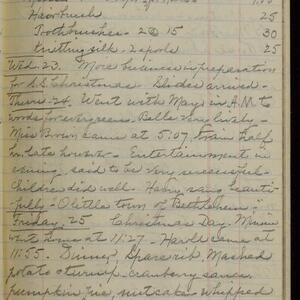 Hairbrush 25
Toothbrushes - 2 @ 15 30
Knitting silk - 2 spools 25
Wed. 23. More business in preparation
for S.S. Christmas. Slides arrived -
Thurs. 24. Went with May in A.M. to
woods for evergreens. Belle very busy -
Miss Brown came at 5:07, train half
hr. late however - Entertainment in
evening, said to be very successful -
Children did well. Harry sang beauti-
fully - O little town of Bethlehem -
Friday, 25 Christmas Day.
went home at 11:27. Harold came at
11:55. Dinner, Spare rib, Mashed
potato & turnip. Cranberry sauce
pumpkin pie, nut cake whipped